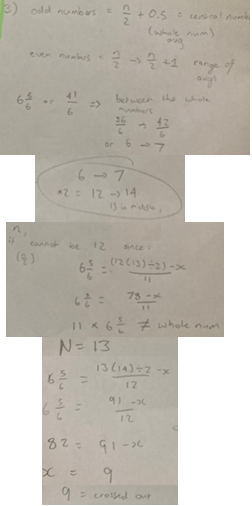 3) odd numbers = n/2 + 0.5 = central number
(whole num)
avg
even numbers = n/2 → n/2 + 1 range of
avgs
6 5/6 or 41/6 ⇒ between the whole
numbers
36/6 → 42/6
or 6 → 7
6 → 7
×2 = 12 → 14
13 is middle,
n,
cannot be 12 once:
(9)
6 5/6 = (12(13)÷2)-x / 11
6 5/6 = 78-x / 11
11 × 6 5/6 ≠ whole num
N = 13
6 5/6 = 13(14)÷2-x / 12
6 5/6 = 91-x / 12
82 = 91-x
x = 9
9 = crossed out